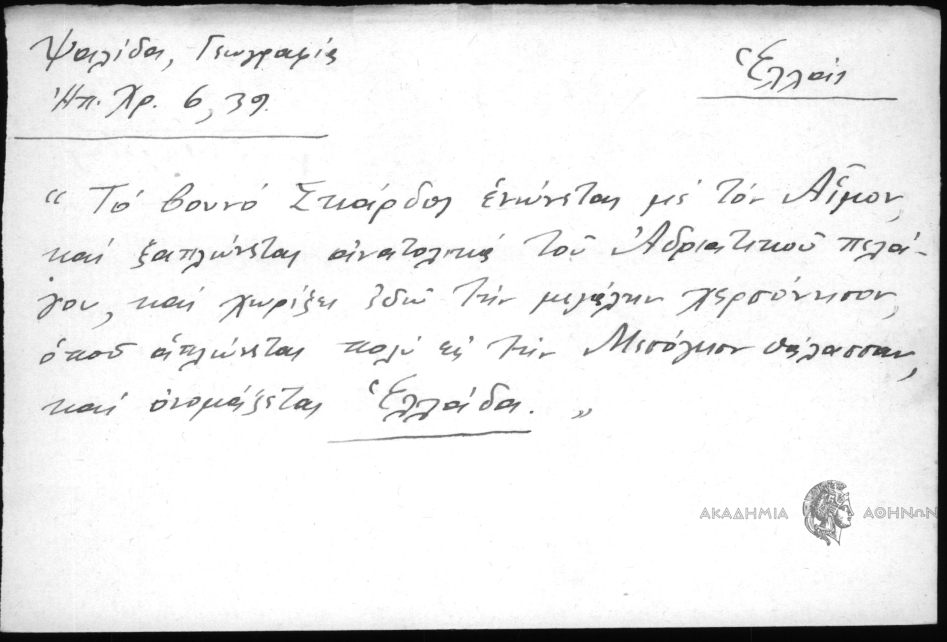 Ψαλίδα, Γεωγραφία
Ἠπ. Χρ. 6, 39.
Ἑλλάς
“ Τό βουνό Σκάρδος ἑνώνεται μέ τόν Αἷμον,
καί ξαπλώνεται ἀνατολικά τοῦ Ἀδριατικοῦ πελά-
γου, καί χωρίζει ἐδῶ τήν μεγάλην χερσόνησον,
ὁποῦ ἁπλώνεται πολύ εἰς τήν Μεσόγειον θάλασσαν,
καί ὀνομάζεται Ἑλλάδα. „
ΑΚΑΔΗΜΙΑ ΑΘΗΝΩΝ